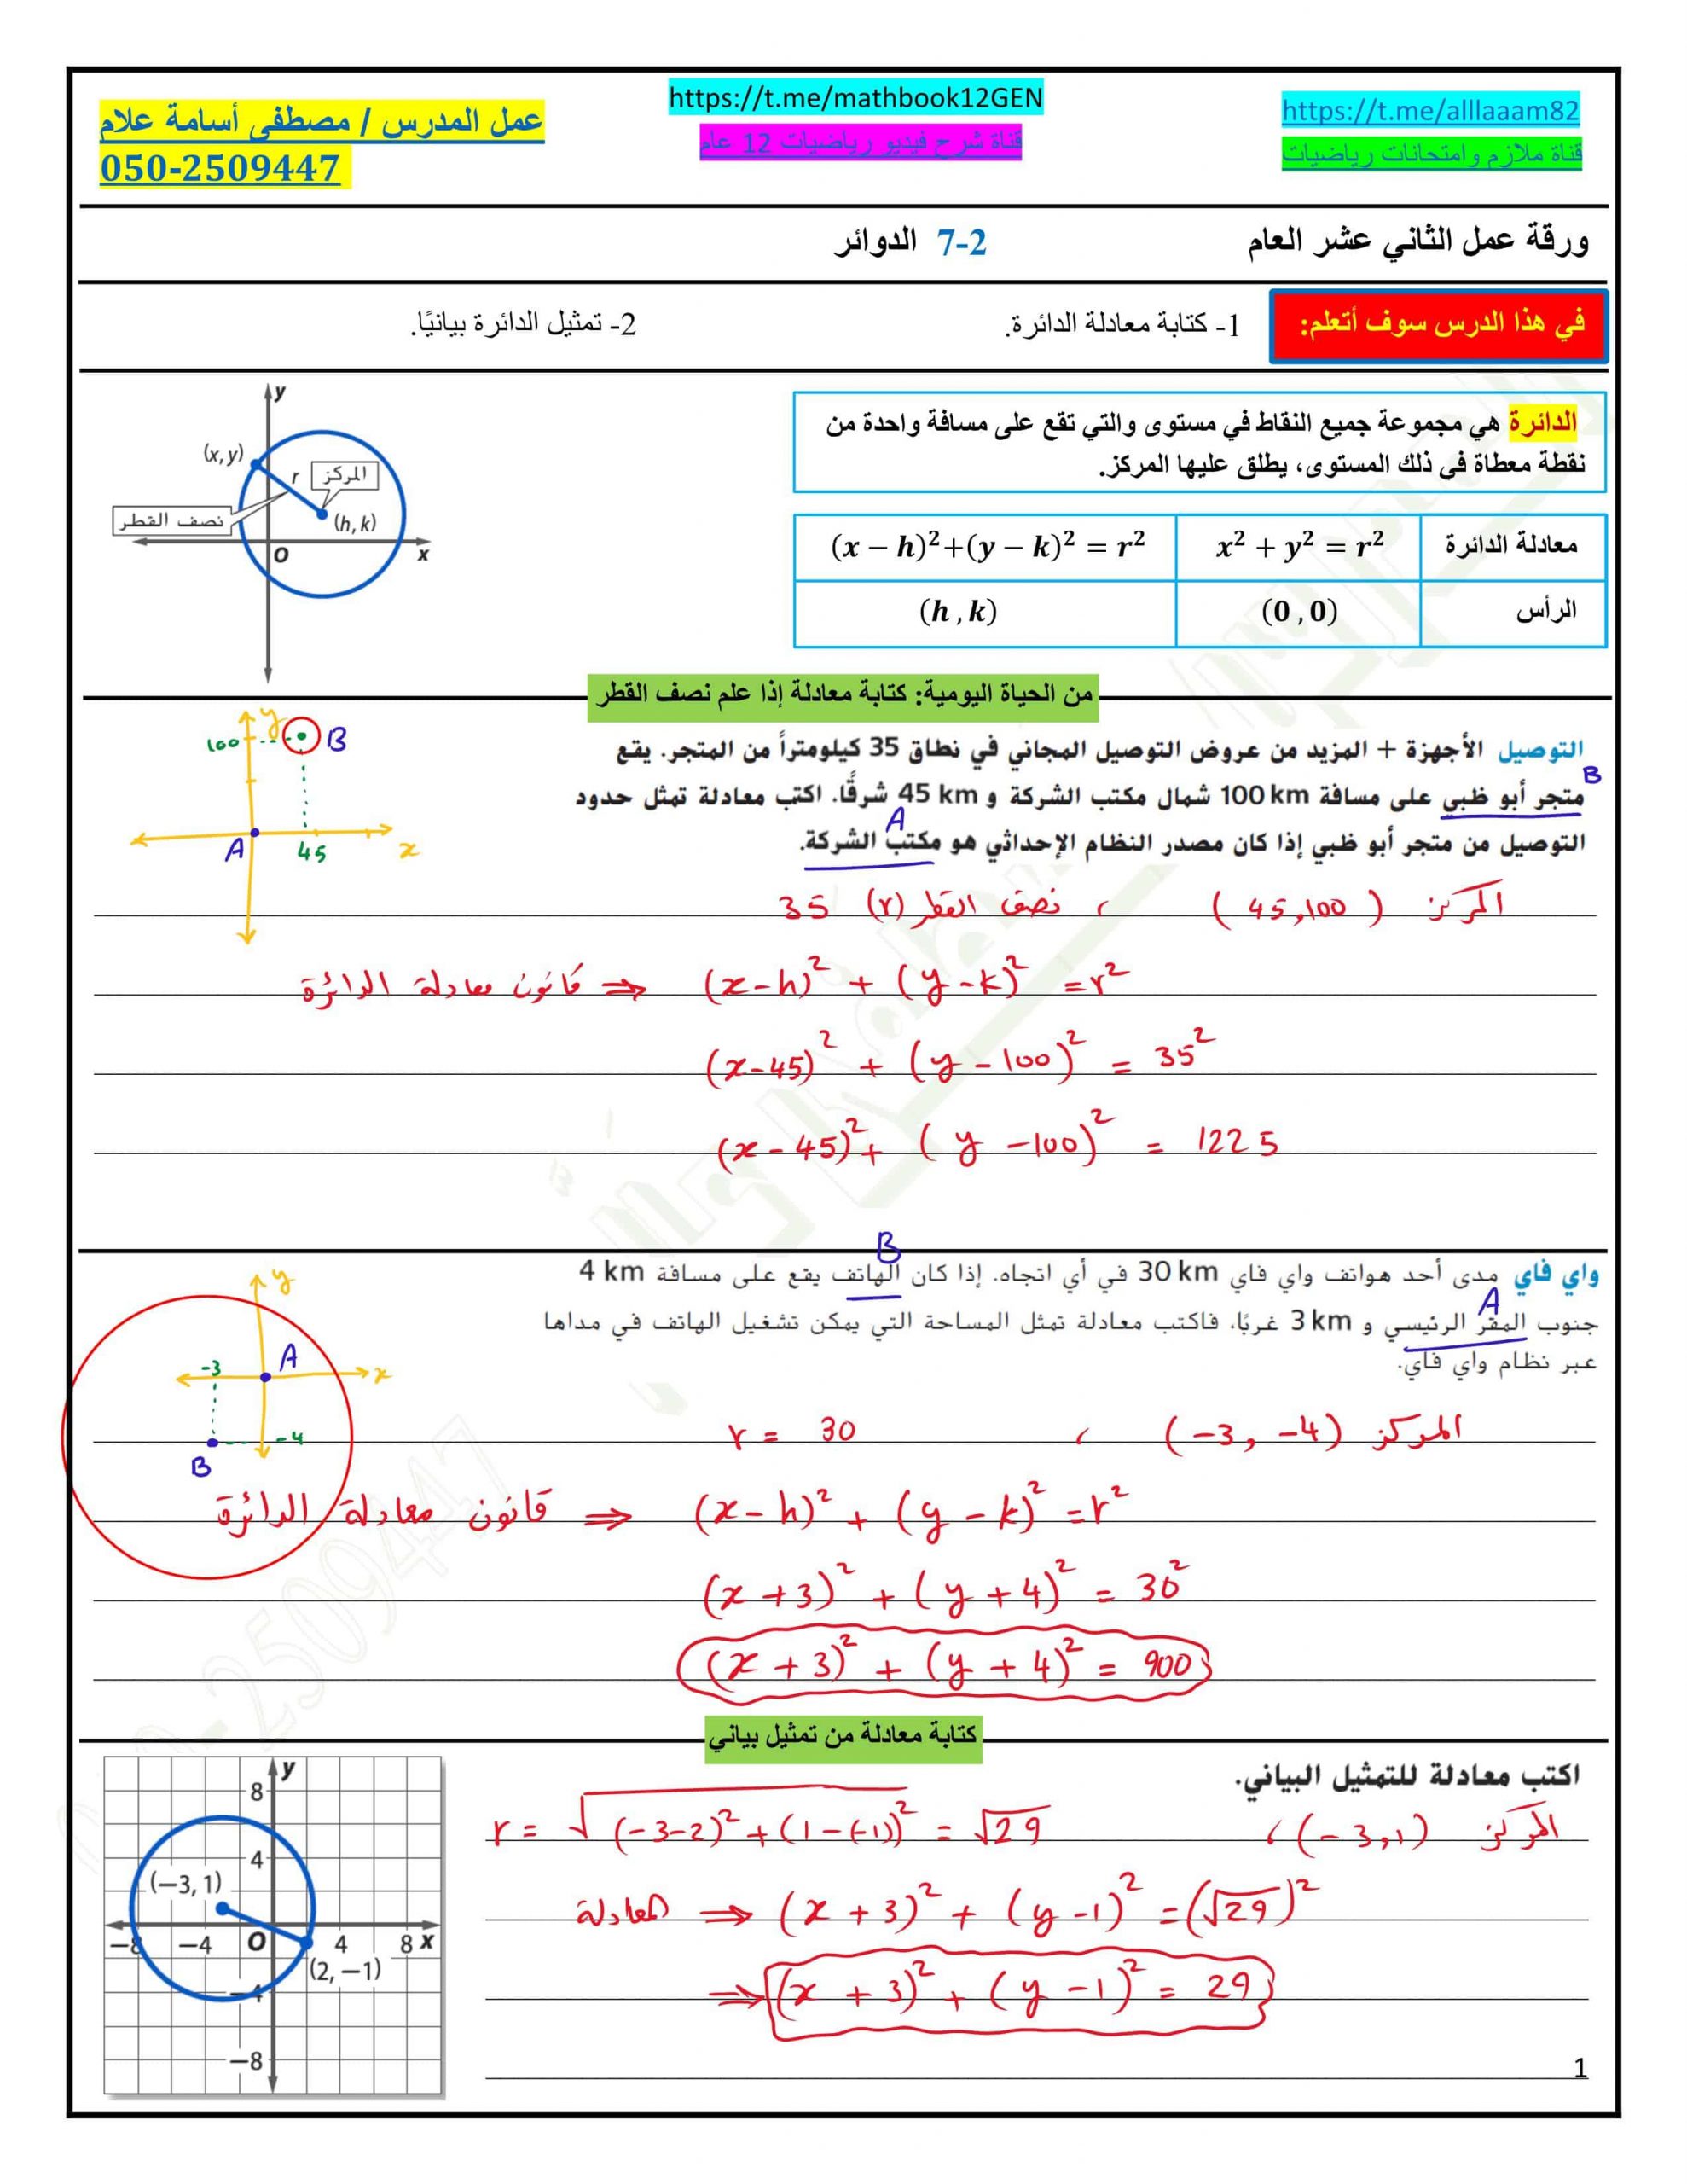 https://t.me/alllaaam82
قناة ملازم وامتحانات رياضيات
https://t.me/mathbook12GEN
قناة شرح فيديو رياضيات 12 عام
عمل المدرس / مصطفى أسامة علام
050-2509447
ورقة عمل الثاني عشر العام
7-2 الدوائر
في هذا الدرس سوف أتعلم:
1- كتابة معادلة الدائرة.
2- تمثيل الدائرة بيانيًا.
الدائرة هي مجموعة جميع النقاط في مستوى والتي تقع على مسافة واحدة من
نقطة معطاة في ذلك المستوى، يطلق عليها المركز.
معادلة الدائرة x² + y² = r² (x − h)²+(y − k)² = r²
الرأس (0 ,0) (h , k)
y
(x, y)
r
المركز
نصف القطر
(h, k)
O
x
من الحياة اليومية: كتابة معادلة إذا علم نصف القطر
التوصيل الأجهزة + المزيد من عروض التوصيل المجاني في نطاق 35 كيلومتراً من المتجر. يقع
B
متجر أبو ظبي على مسافة 100 km شمال مكتب الشركة و 45 km شرقًا. اكتب معادلة تمثل حدود
A
التوصيل من متجر أبو ظبي إذا كان مصدر النظام الإحداثي هو مكتب الشركة.
y
100
B
A
45
x
المركز (45,100) ، نصف القطر (r) 35
(x-h)² + (y-k)² = r² ⇒ قانون معادلة الدائرة
(x-45)² + (y-100)² = 35²
(x-45)² + (y-100)² = 1225
B
واي فاي مدى أحد هواتف واي فاي 30 km في أي اتجاه. إذا كان الهاتف يقع على مسافة 4 km
A
جنوب المقر الرئيسي و 3 km غربًا، فاكتب معادلة تمثل المساحة التي يمكن تشغيل الهاتف في مداها
عبر نظام واي فاي.
y
-3
A
x
-4
B
المركز (-3, -4) ، r = 30
(x-h)² + (y-k)² = r² ⇒ قانون معادلة الدائرة
(x+3)² + (y+4)² = 30²
(x+3)² + (y+4)² = 900
كتابة معادلة من تمثيل بياني
اكتب معادلة للتمثيل البياني.
المركز (-3,1) ، r = √(-3-2)²+(1-(-1))² = √29
المعادلة ⇒ (x+3)² + (y-1)² = (√29)²
⇒ (x+3)² + (y-1)² = 29
y
8
4
(−3, 1)
−8 −4 O 4 8 x
(2, −1)
−4
−8
1
050-2509447